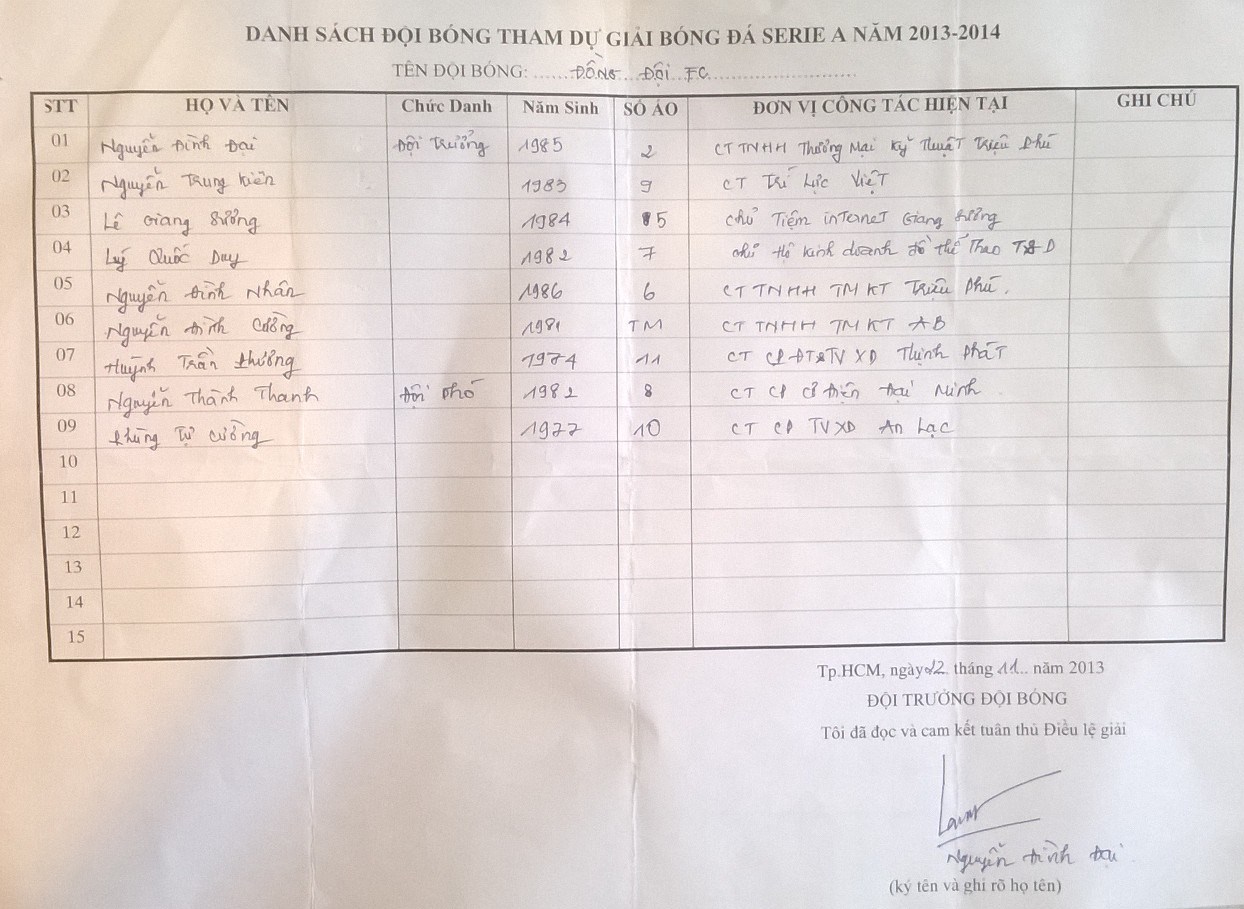 DANH SÁCH ĐỘI BÓNG THAM DỰ GIẢI BÓNG ĐÁ SERIE A NĂM 2013-2014
TÊN ĐỘI BÓNG: ...... ĐỒNG ĐỘI FC ..............................
STT HỌ VÀ TÊN Chức Danh Năm Sinh SỐ ÁO ĐƠN VỊ CÔNG TÁC HIỆN TẠI GHI CHÚ
01 Nguyễn Đình Đại Đội Trưởng 1985 2 CT TNHH Thương Mại Kỹ Thuật Triệu Phú
02 Nguyễn Trung Kiên 1983 9 CT Trí Lực Việt
03 Lê Giang Sương 1984 5 Chủ Tiệm internet Giang Sương
04 Lý Quốc Duy 1982 7 chủ Hộ kinh doanh đồ thể Thao T&D
05 Nguyễn Đình Nhân 1986 6 CT TNHH TM KT Triệu Phú.
06 Nguyễn Đình Cường 1981 TM CT TNHH TM KT AB
07 Huỳnh Trần Phương 1974 11 CT CP ĐT&TV XD Thịnh Phát
08 Nguyễn Thành Thanh Đội Phó 1982 8 CT CP Cơ Điện Đại Ninh
09 Phùng Tự Cường 1977 10 CT CP TVXD An Lạc
10
11
12
13
14
15
Tp.HCM, ngày 12 tháng 11.. năm 2013
ĐỘI TRƯỞNG ĐỘI BÓNG
Tôi đã đọc và cam kết tuân thủ Điều lệ giải
Nguyễn Đình Đại
(ký tên và ghi rõ họ tên)